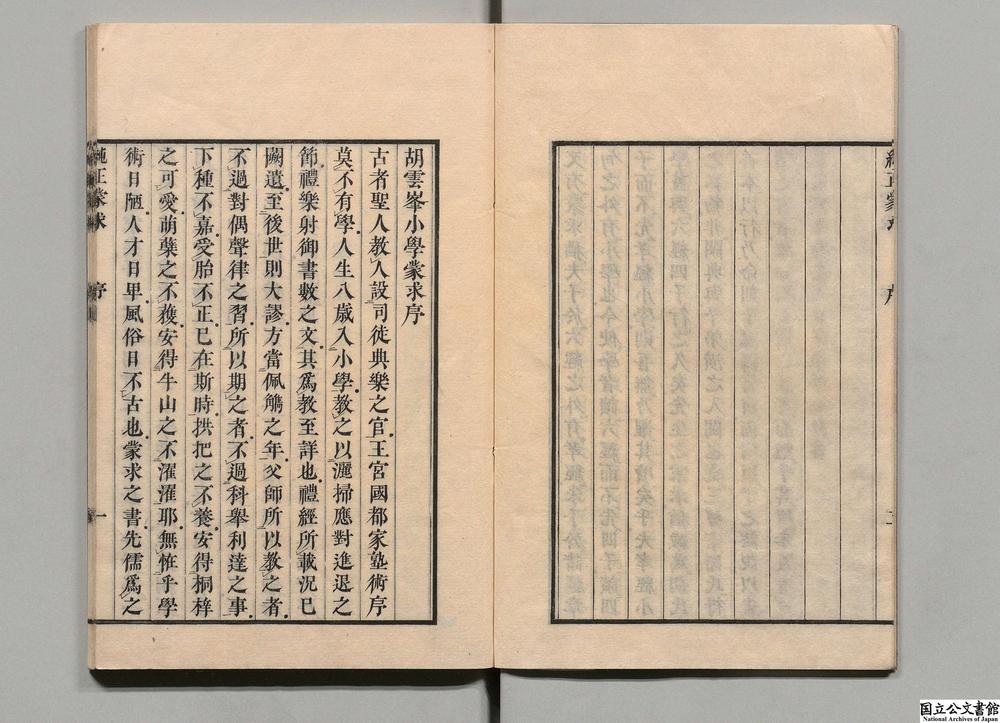 胡雲峯小學蒙求序
古者聖人教人設司徒典樂之官王宮國都家塾術序
莫不有學人生八歳入小學教之以灑掃應對進退之
節禮樂射御書數之文其爲教至詳也禮經所載況已
闕遺至後世則大謬方當佩觿之年父師所以教之者
不過對偶聲律之習所以期之者不過科舉利達之事
下種不嘉受胎不正已在斯時拱把之不養安得桐梓
之可愛萌蘖之不䕶安得牛山之不濯濯耶無恠乎學
術日陋人才日卑風俗日不古也蒙求之書先儒爲之
純正蒙求 序 一
国立公文書館
National Archives of Japan